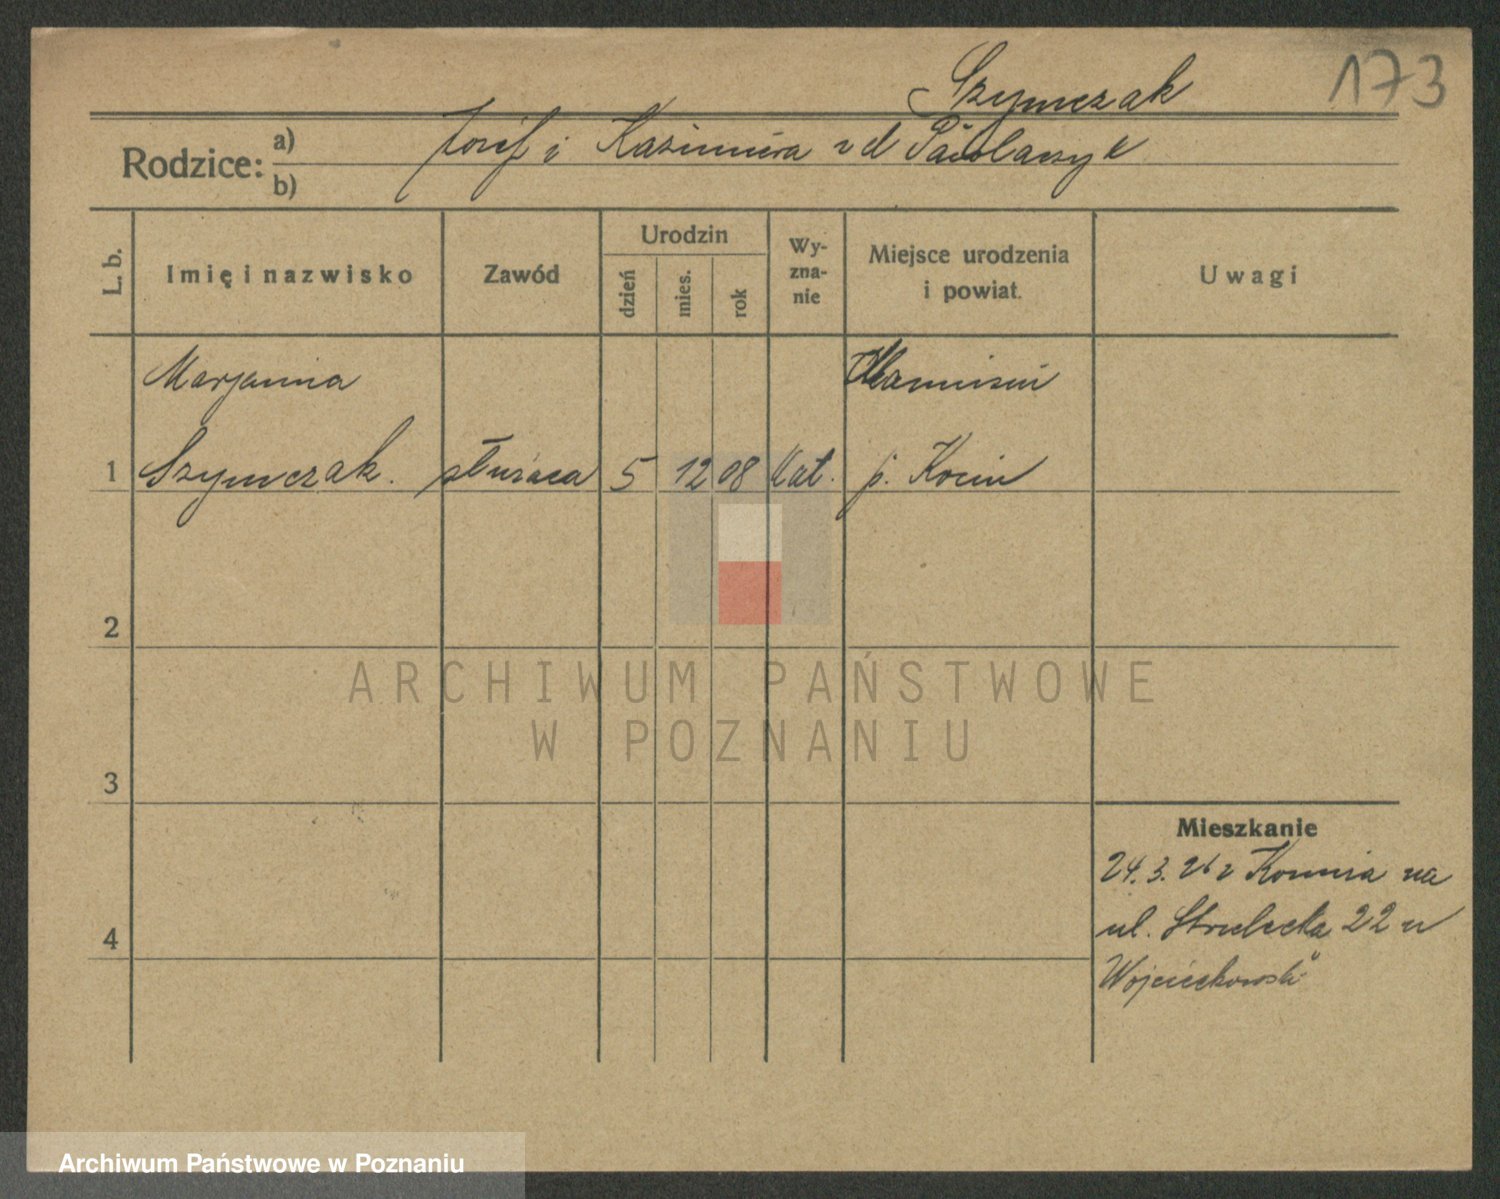 173
Szymczak
Rodzice: a) Józef i Kazimiera z d
b)
L. b.
Imię i nazwisko
Zawód
Urodzin
dzień
mies.
rok
Wy-
zna-
nie
Miejsce urodzenia
i powiat.
Uwagi
Marjanna
1 Szymczak. służąca 5 12 08 kat. p.
2
3
4
Mieszkanie
24. 3. 26 z na
ul. Strzelecka 22 u
Wojciechowski
ARCHIWUM PAŃSTWOWE
W POZNANIU
Archiwum Państwowe w Poznaniu